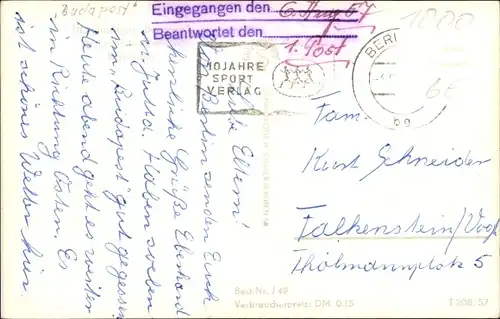 Budapest
Eingegangen den 6. Aug 57
Beantwortet den
1. Post
10 JAHRE
SPORT
VERLAG
BERL
bg
1000
Liebe Eltern!
Aus Berlin senden Euch
herzliche Grüße Eberhard
u. Jutta. Haben soeben
im Budapest gut gegessen.
Heute abend geht es weiter
in Richtung Osten. Es
ist schönes Wetter hier.
Fam.
Kurt Schneider
Falkenstein/Vogl
Thälmannplatz 5
Best.-Nr. J 49
Verbraucherpreis: DM 0,15
T 208. 57